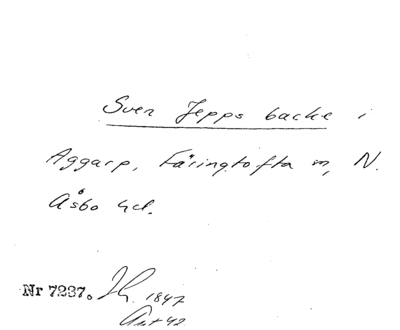 Sven Jepps backe i
Aggarp, Färingtofta sn, N.
Åsbo hd.
Nr 7237. 1847